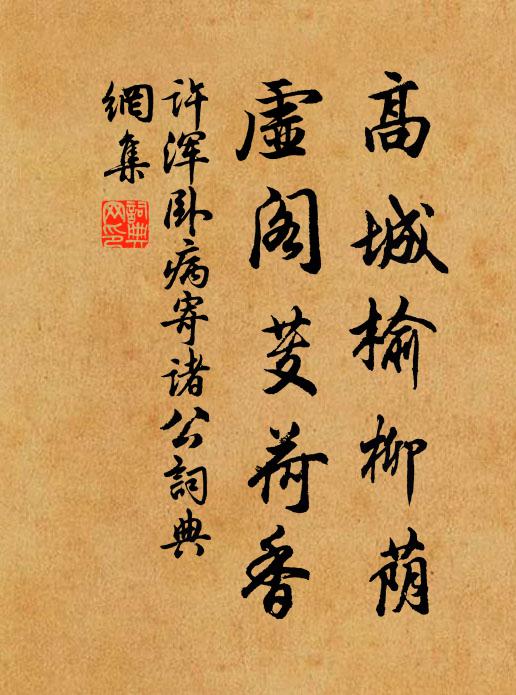 高城榆柳荫
虚阁芰荷香
许浑卧病寄诸公词典
網集
詞典網印